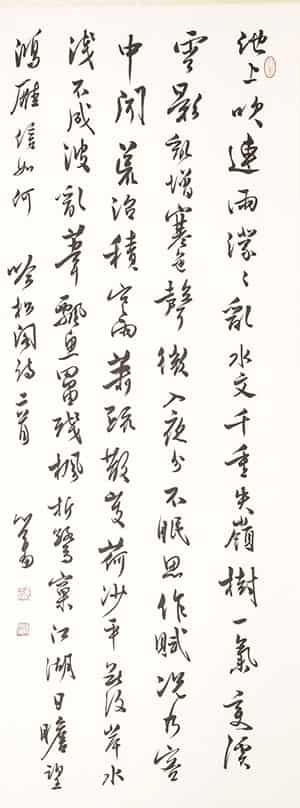 池上吹連雨濛々亂水文千重失嶺樹一氣變溪
雲影亂增寒色聲微入夜分不眠思作賦況乃客
中聞 荒沼積雨蕭疏散芰荷沙平沒岸水
淺不成波亂葦飄魚罶殘楓折鶩窠江湖日瞻望
鴻雁信如何 吟松閣詩二首 心畬